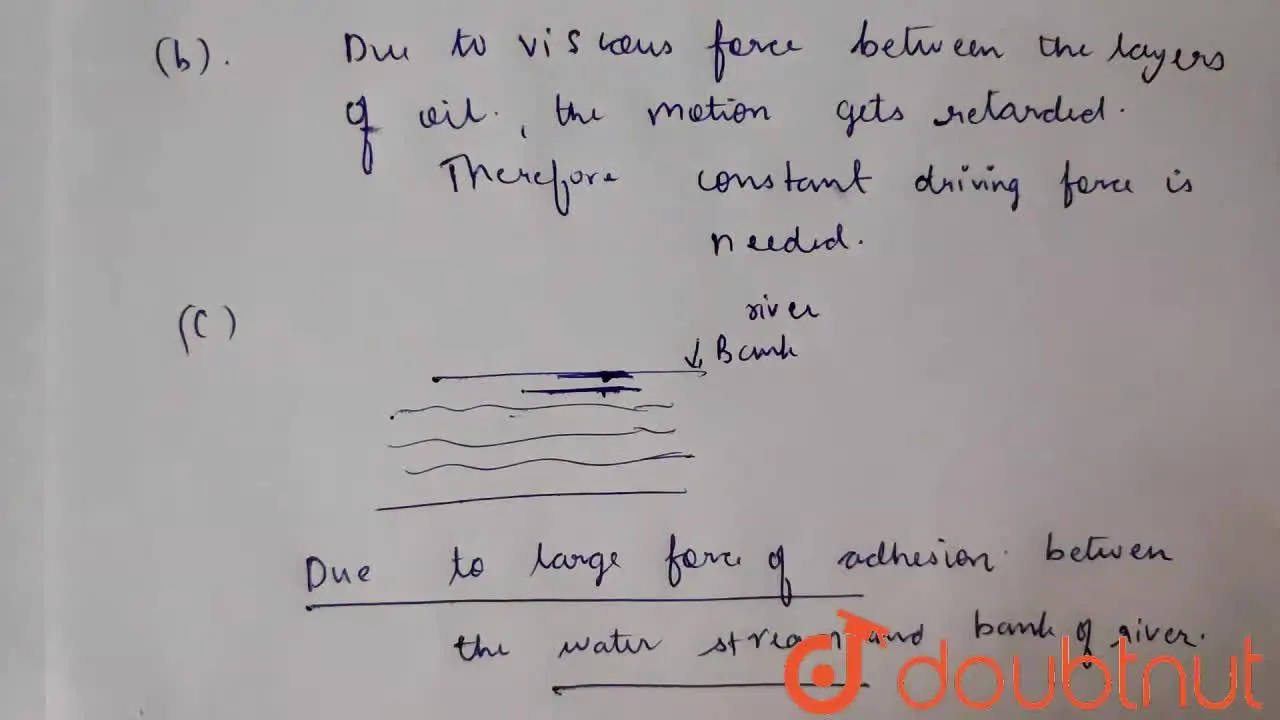 (b). Due to viscous force between the layers
of oil., the motion gets retarded.
Therefore constant driving force is
needed.
(C)
river
Bank
Due to large force of adhesion between
the water stream and bank of river.
doubtnut